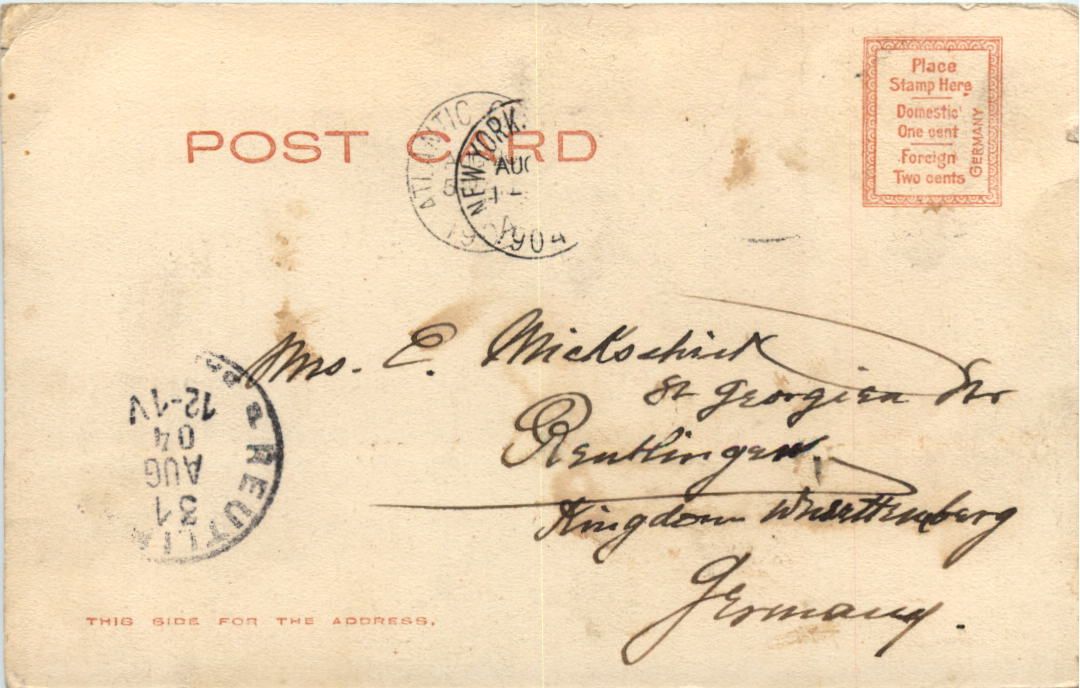 POST CARD
Place
Stamp Here
Domestic
One cent
Foreign
Two cents
GERMANY
ATLANTIC
NEW YORK.
AUG
1904
Mrs. E.
St Georgien Str
Reutlingen.
Kingdom Wuerttemberg
Germany.
REUTLIN
31
AUG
04
12-1V
THIS SIDE FOR THE ADDRESS.